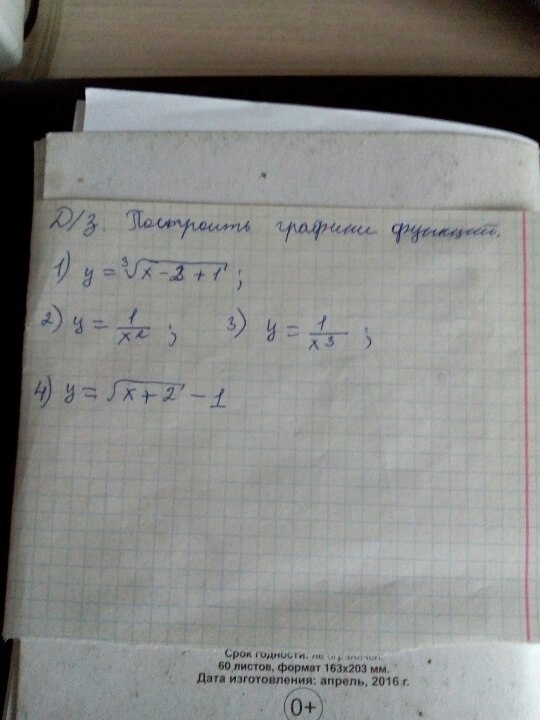 Д/З. Построить графики функций.
1) y = ∛(x-2+1);
2) y = 1/x²; 3) y = 1/x³;
4) y = √(x+2) - 1
Срок годности: не ограничен.
60 листов, формат 163х203 мм.
Дата изготовления: апрель, 2016 г.
0+